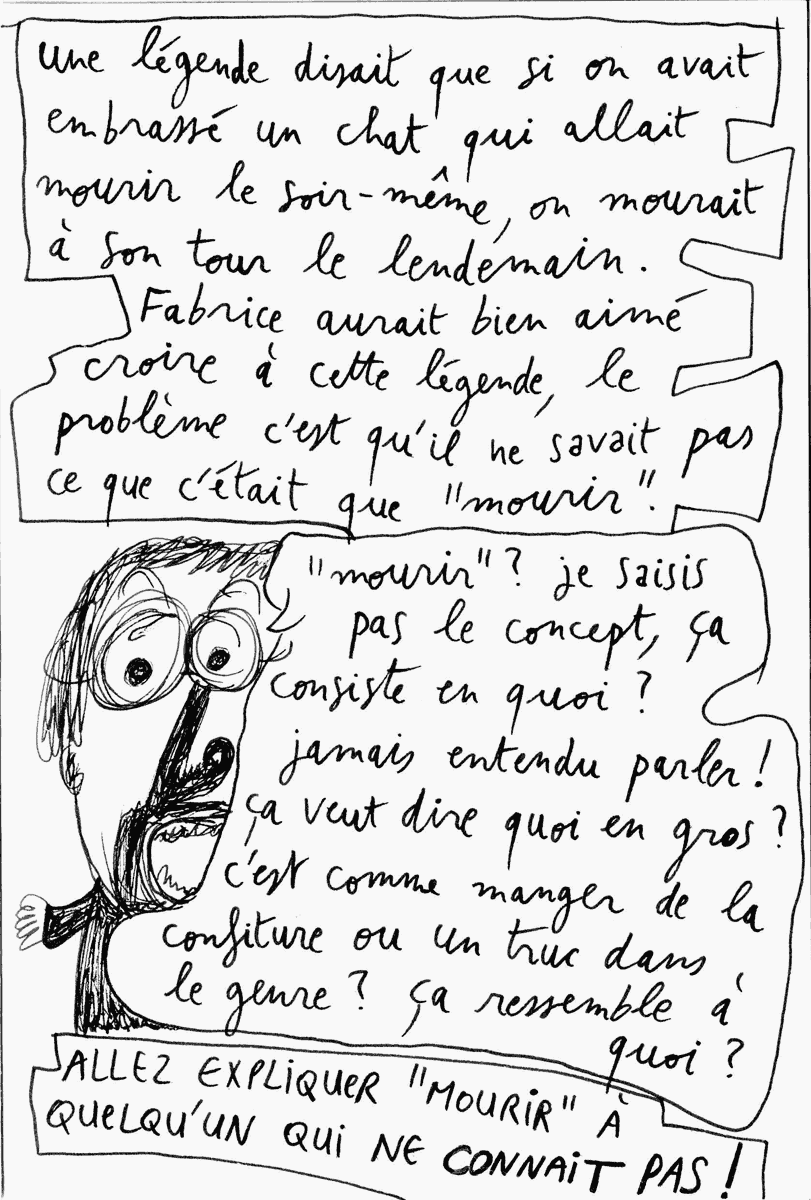 une légende disait que si on avait
embrassé un chat qui allait
mourir le soir-même, on mourait
à son tour le lendemain.
Fabrice aurait bien aimé
croire à cette légende, le
problème c'est qu'il ne savait pas
ce que c'était que "mourir".
"mourir"? je saisis
pas le concept, ça
consiste en quoi ?
jamais entendu parler !
ça veut dire quoi en gros ?
c'est comme manger de la
confiture ou un truc dans
le genre ? ça ressemble à
quoi ?
ALLEZ EXPLIQUER "MOURIR" À
QUELQU'UN QUI NE CONNAIT PAS !